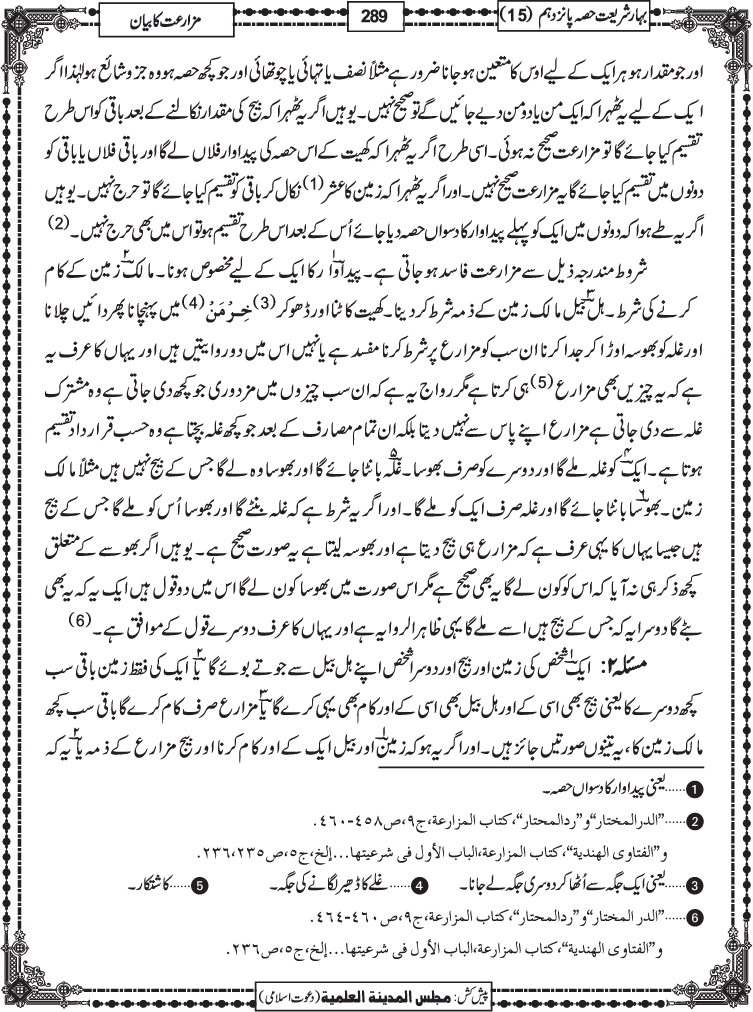 بہارِ شریعت حصہ پانزدہم (15)
289
مزارعت کا بیان
اور جو مقدار ہو ہر ایک کے لیے اوس کا متعین ہوجانا ضرور ہے مثلاً نصف یا تہائی یا چوتھائی اور جو کچھ حصہ ہو وہ جز و شائع ہو لہٰذا اگر
ایک کے لیے یہ ٹھہرا کہ ایک من یا دو من دیے جائیں گے تو صحیح نہیں۔ یوہیں اگر یہ ٹھہرا کہ بیج کی مقدار نکالنے کے بعد باقی کو اس طرح
تقسیم کیا جائے گا تو مزارعت صحیح نہ ہوئی۔ اسی طرح اگر یہ ٹھہرا کہ کھیت کے اس حصہ کی پیداوار فلاں لے گا اور باقی فلاں یا باقی کو
دونوں میں تقسیم کیا جائے گا یہ مزارعت صحیح نہیں۔ اور اگر یہ ٹھہرا کہ زمین کا عشر (1) نکال کر باقی کو تقسیم کیا جائے گا تو حرج نہیں۔ یوہیں
اگر یہ طے ہوا کہ دونوں میں ایک کو پہلے پیداوار کا دسواں حصہ دیا جائے اُس کے بعد اس طرح تقسیم ہو تو اس میں بھی حرج نہیں۔ (2)
شروط مندرجہ ذیل سے مزارعت فاسد ہو جاتی ہے۔ ۱پیداوار کا ایک کے لیے مخصوص ہونا۔ ۲مالک زمین کے کام
کرنے کی شرط۔ ۳ہل بیل مالک زمین کے ذمہ شرط کر دینا۔ کھیت کاٹنا اور ڈھو کر (3) خِرْمَنْ (4) میں پہنچانا پھر دائیں چلانا
اور غلہ کو بھوسہ اوڑا کر جدا کرنا ان سب کو مزارع پر شرط کرنا مفسد ہے یا نہیں اس میں دو روایتیں ہیں اور یہاں کا عرف یہ
ہے کہ یہ چیزیں بھی مزارع (5) ہی کرتا ہے مگر رواج یہ ہے کہ ان سب چیزوں میں مزدوری جو کچھ دی جاتی ہے وہ مشترک
غلہ سے دی جاتی ہے مزارع اپنے پاس سے نہیں دیتا بلکہ ان تمام مصارف کے بعد جو کچھ غلہ بچتا ہے وہ حسب قرارداد تقسیم
ہوتا ہے۔ ۴ایک کو غلہ ملے گا اور دوسرے کو صرف بھوسا۔ ۵غلّہ بانٹا جائے گا اور بھوسا وہ لے گا جس کے بیج نہیں ہیں مثلاً مالک
زمین۔ ۶بھوسا بانٹا جائے گا اور غلہ صرف ایک کو ملے گا۔ اور اگر یہ شرط ہے کہ غلہ بٹے گا اور بھوسا اُس کو ملے گا جس کے بیج
ہیں جیسا یہاں کا یہی عرف ہے کہ مزارع ہی بیج دیتا ہے اور بھوسہ لیتا ہے یہ صورت صحیح ہے۔ یوہیں اگر بھوسے کے متعلق
کچھ ذکر ہی نہ آیا کہ اس کو کون لے گا یہ بھی صحیح ہے مگر اس صورت میں بھوسا کون لے گا اس میں دو قول ہیں ایک یہ کہ یہ بھی
بٹے گا دوسرا یہ کہ جس کے بیج ہیں اسے ملے گا یہی ظاہر الروایہ ہے اور یہاں کا عرف دوسرے قول کے موافق ہے۔ (6)
مسئلہ ۲: ۱ایک شخص کی زمین اور بیج اور دوسرا شخص اپنے ہل بیل سے جوتے بوئے گا ۲یا ایک کی فقط زمین باقی سب
کچھ دوسرے کا یعنی بیج بھی اسی کے اور ہل بیل بھی اسی کے اور کام بھی یہی کرے گا ۳یا مزارع صرف کام کرے گا باقی سب کچھ
مالک زمین کا، یہ تینوں صورتیں جائز ہیں۔ اور اگر یہ ہو کہ ۱زمین اور بیل ایک کے اور کام کرنا اور بیج مزارع کے ذمہ ۲یا یہ کہ
1 ......یعنی پیداوار کا دسواں حصہ۔
2 ......"الدرالمختار" و "ردالمحتار"، کتاب المزارعة، ج۹، ص۴۵۸-۴۶۰.
و "الفتاوی الھندیة"، کتاب المزارعة، الباب الأول فی شرعیتھا...إلخ، ج۵، ص۲۳۵، ۲۳۶.
3 ......یعنی ایک جگہ سے اُٹھا کر دوسری جگہ لے جانا۔ 4 ......غلے کا ڈھیر لگانے کی جگہ۔ 5 ......کاشتکار۔
6 ......"الدر المختار" و "ردالمحتار"، کتاب المزارعة، ج۹، ص۴۶۰-۴۶۴.
و "الفتاوی الھندیة"، کتاب المزارعة، الباب الأول فی شرعیتھا...إلخ، ج۵، ص۲۳۶.
پیش کش: مجلس المدینة العلمیة (دعوت اسلامی)